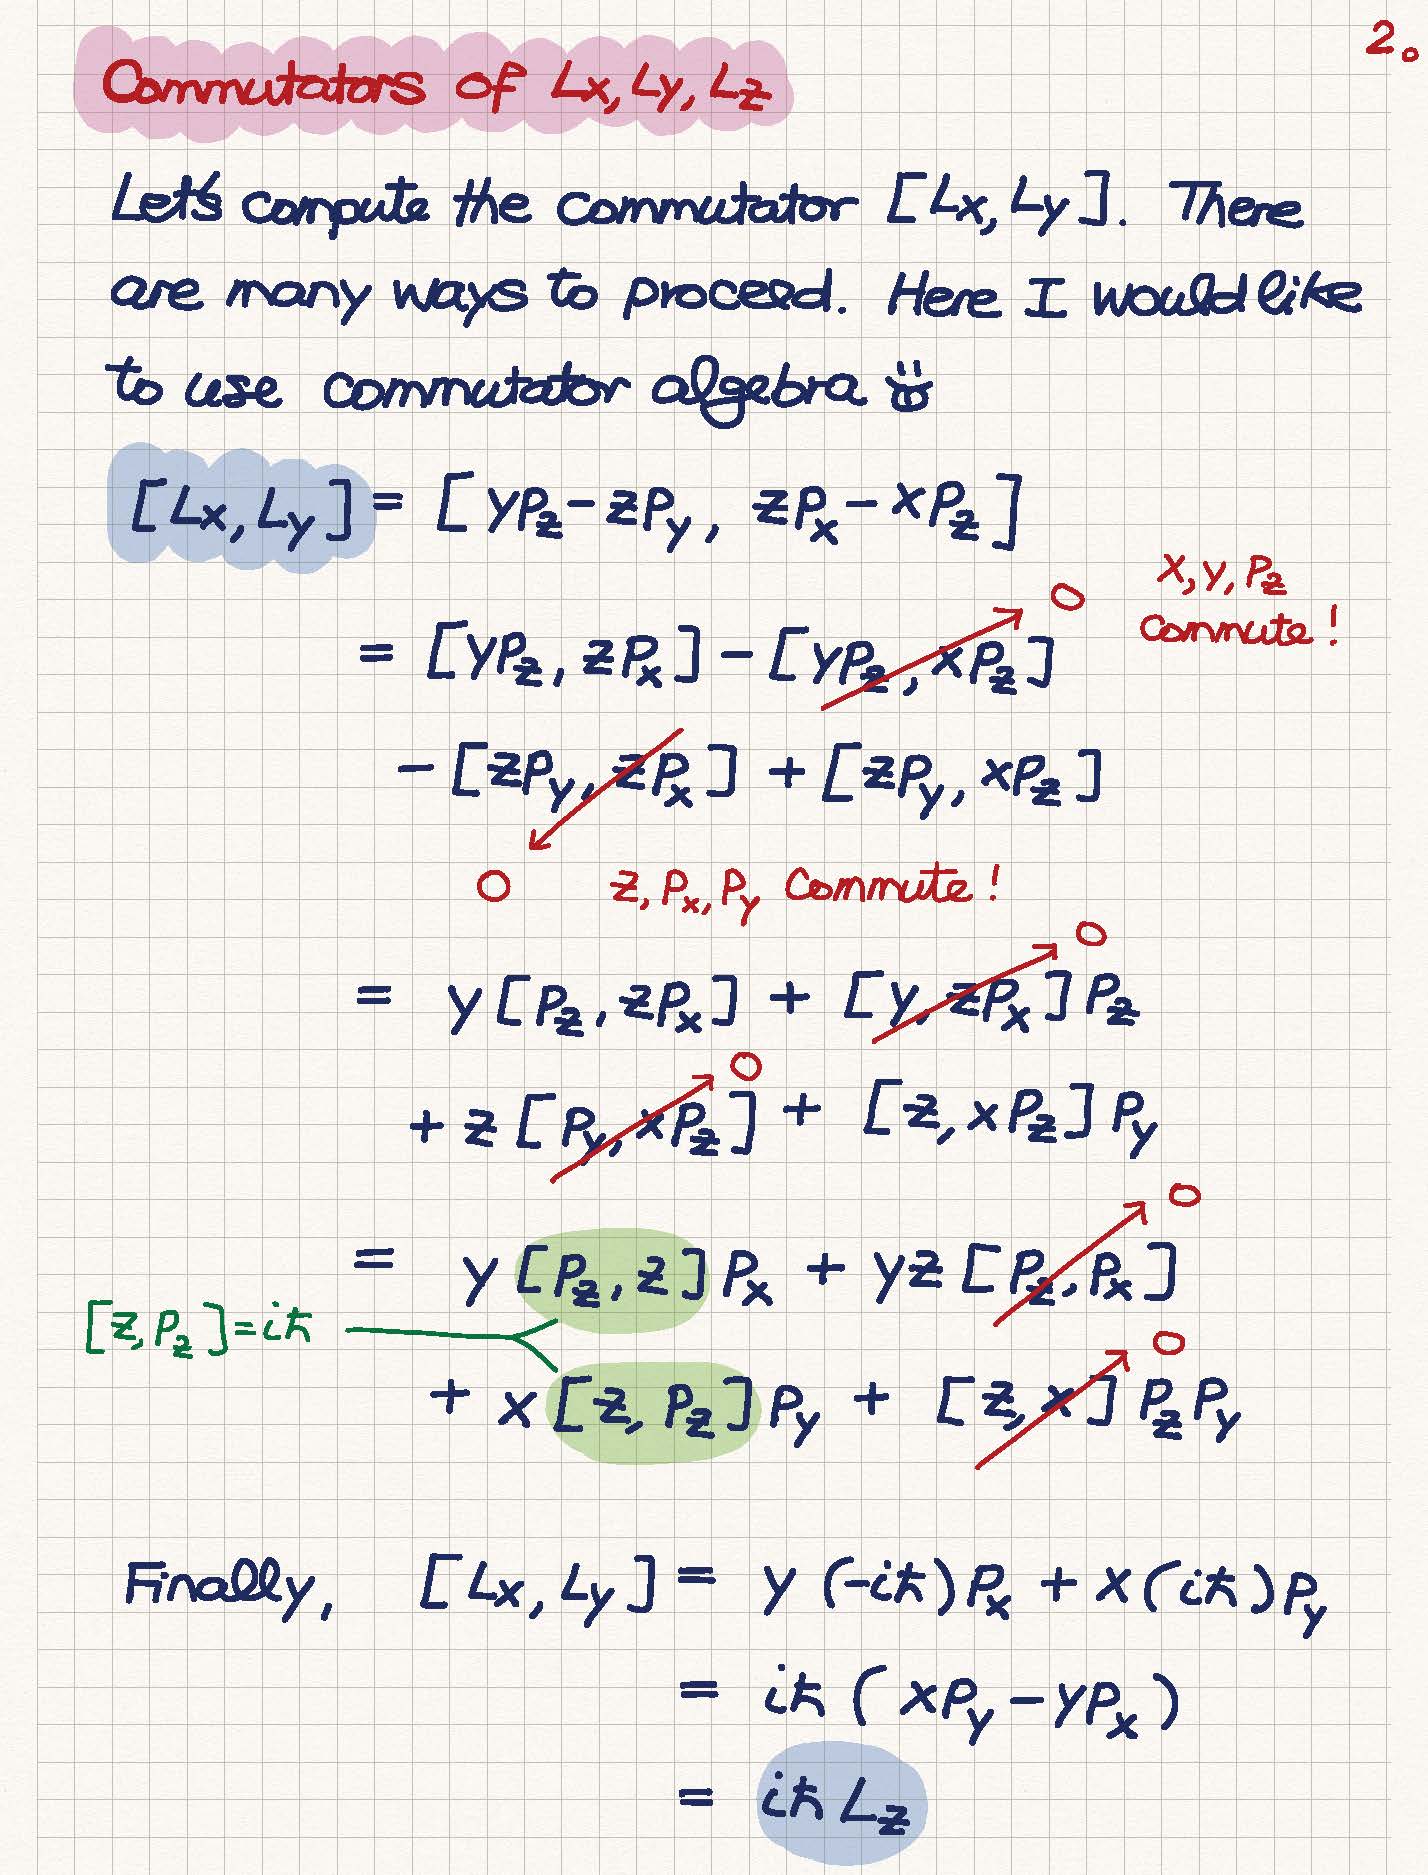 2.
Commutators of Lx, Ly, Lz
Let's compute the commutator [Lx, Ly]. There
are many ways to proceed. Here I would like
to use commutator algebra
[Lx, Ly] = [yPz - zPy, zPx - xPz]
= [yPz, zPx] - [yPz, xPz] 0
x, y, Pz
commute!
- [zPy, zPx] + [zPy, xPz]
0 z, Px, Py commute!
= y[Pz, zPx] + [y, zPx]Pz 0
+ z[Py, xPz] 0 + [z, xPz]Py
= y[Pz, z]Px + yz[Pz, Px] 0
[z, Pz] = iħ
+ x[z, Pz]Py + [z, x]PzPy 0
Finally, [Lx, Ly] = y(-iħ)Px + x(iħ)Py
= iħ(xPy - yPx)
= iħLz